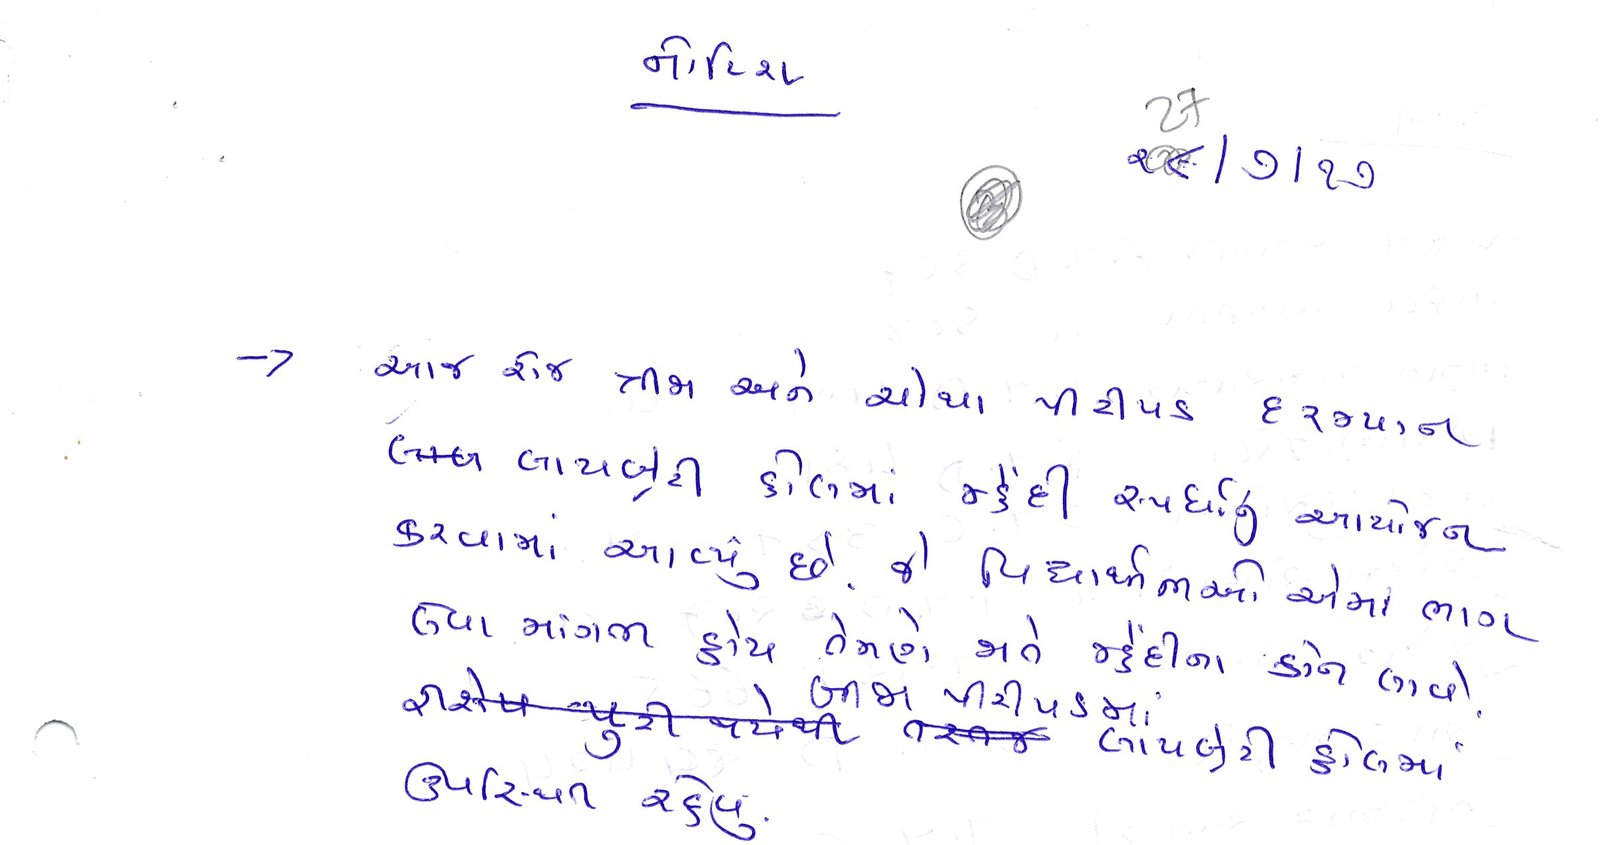 નોટિશ
27
૨૬/૭/૧૭
→ આજ રોજ ત્રીજા અને ચોથા પીરીયડ દરમ્યાન
લાયબ્રેરી હોલમાં મહેંદી સ્પર્ધાનું આયોજન
કરવામાં આવ્યું છે. જે વિદ્યાર્થીનીઓ એમાં ભાગ
લેવા માંગતા હોય તેમણે જાતે મહેંદીના કોન લાવો.
ત્રીજા પીરીયડમાં
પુરી થયેથી લાયબ્રેરી હોલમાં
ઉપસ્થિત રહેવું.